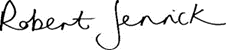 Robert Jenrick